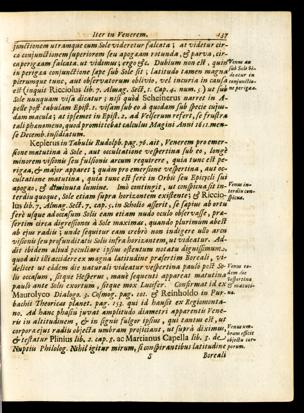 Iter in Venerem. 237
junctionem utramque cum Sole videretur falcata; at videtur circa
conjunctionem superiorem seu apogæam rotunda, & parva, circa
perigæam falcata. ut vidimus; ergo &c. Dubium non est, quin
in perigæa conjunctione sæpe sub Sole sit; latitudo tamen magna
plerumque tunc, aut observatorum oblivio, vel incuria in causa
est (inquit Ricciolus lib. 7. Almag. Sect. 1. Cap. 4. num. 5.) ut sub
Sole nunquam visa dicatur; nisi quod Scheinerus narret in Apelle
post tabulam Epist. 1. visam fuisse à quodam sub specie cujusdam
macula; at ipsemet in Epist. 2. ad Velserum refert, se frustra
tali phænomeno, quod promittebat calculus Magini Anni 1611. mense
Decemb. insidiatum.
Keplerus in Tabulis Rudolph. pag. 56. ait, Venerem pro emersione
matutina à Sole, aut occultatione vespertina sub eo, longè
minorem visionis seu fulsionis arcum requirere, quia tunc est perigæa,
& major apparet; quàm pro emersione vespertina, aut occultatione
matutina, quia tunc est ferè in Orbis seu Epicycli sui
apogæo, & diminuta lumine. Imò contingit, ut conspicua sit interdiu
quoque, Sole etiam supra horizontem existente; & Ricciolus
lib. 7. Almag. Sect. 7. cap. 3. in Scholio asserit, se sæpius ab ortu
ferè usque ad occasum Solis eam etiam nudo oculo observasse, præsertim
circa digressionem à Sole maximam, quando plurimùm abest
ab ejus radiis; unde sequitur eam crebrò non indigere ullo arcu
visionis seu profunditatis Solis infra horizontem, ut videatur.
quod ait ista accidere ex magna latitudine præsertim Boreali, videlicet
ut eodem die naturali videatur vespertina paulò post Solis
occasum, sitque Hesperus; manè sequenti appareat matutina
paulò ante Solis exortum, sitque mox Lucifer. Confirmat id ex
Maurolyco Dialogo. 3. Cosmog. pag. & Reinholdo in Purbachii
Theoricas planet. pag. 153. qui id hausit ex Regiomontano.
Ad hanc phasin juvat amplitudo diametri apparentis Veneris
in altitudinem, & in signis fulgor ipsius, qui tantus est, ut
corpora ejus radiis objecta umbram projiciant, ut suprà diximus,
& testatur Plinius lib. 2. cap. 8. ac Martianus Capella lib. 8. de
Nuptiis Philolog. Nihil igitur mirum, si conspirantibus latitudine
S Boreali
Venus an
sub Sole videatur
in
conjunctione
perigæa.
Venus interdiu
conspicua.
Venus eodem
die
vespertina
& matutina.
Venus umbram
efficit
objecta
corporum.